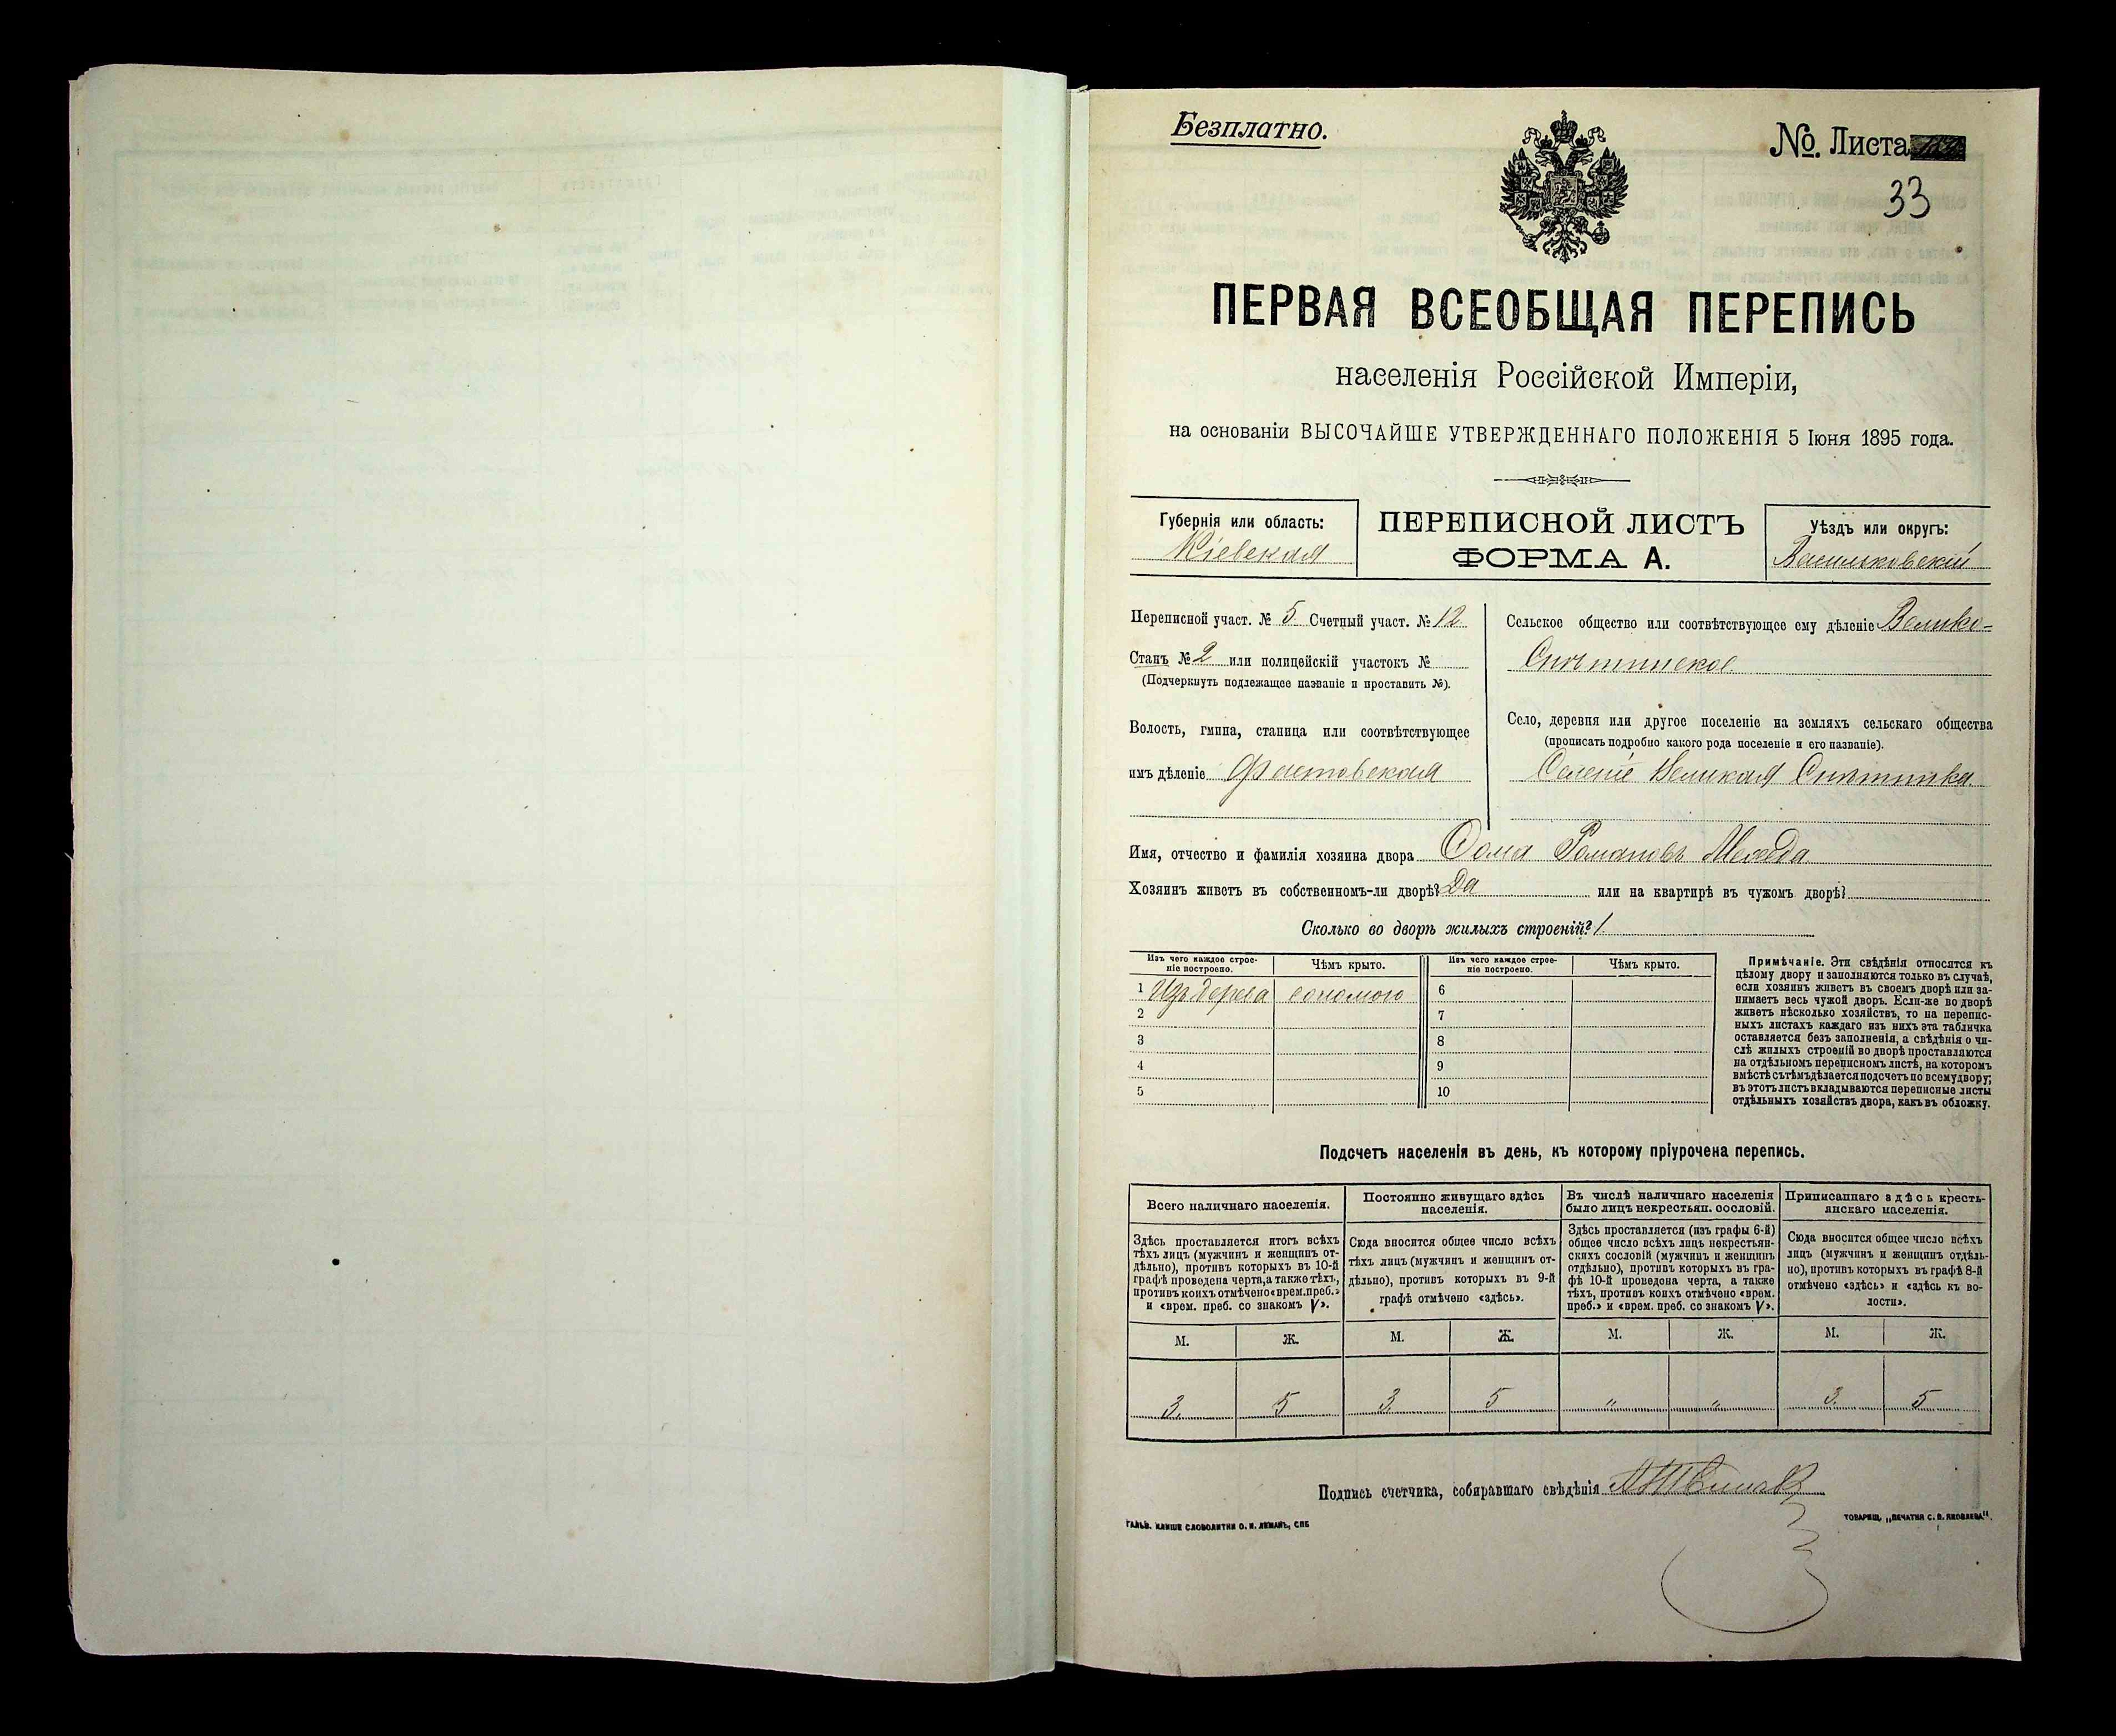 Безплатно.
№ Листа
33
ПЕРВАЯ ВСЕОБЩАЯ ПЕРЕПИСЬ
населенія Россійской Имперіи,
на основаніи ВЫСОЧАЙШЕ УТВЕРЖДЕННАГО ПОЛОЖЕНІЯ 5 Іюня 1895 года.
Губернія или область:
Кіевская
ПЕРЕПИСНОЙ ЛИСТЪ
ФОРМА А.
Уѣздъ или округъ:
Васильковскій
Переписной участ. № 5 Счетный участ. № 12
Станъ № 2 или полицейскій участокъ №
(Подчеркнуть подлежащее названіе и проставить №).
Волость, гмина, станица или соотвѣтствующее
имъ дѣленіе Фастовская
Сельское общество или соотвѣтствующее ему дѣленіе Велико-
Снѣтинское
Село, деревня или другое поселеніе на земляхъ сельскаго общества
(прописать подробно какого рода поселеніе и его названіе).
Селеніе Великая Снѣтинка
Имя, отчество и фамилія хозяина двора Ѳома Романовъ
Хозяинъ живетъ въ собственномъ-ли дворѣ? Да или на квартирѣ въ чужомъ дворѣ?
Сколько во дворѣ жилыхъ строеній? 1
Изъ чего каждое строе-
ніе построено.
Чѣмъ крыто.
Изъ чего каждое строе-
ніе построено.
Чѣмъ крыто.
1 Изъ дерева соломою 6
2 7
3 8
4 9
5 10
Примѣчаніе. Эти свѣдѣнія относятся къ
цѣлому двору и заполняются только въ случаѣ,
если хозяинъ живетъ въ своемъ дворѣ или за-
нимаетъ весь чужой дворъ. Если-же во дворѣ
живетъ нѣсколько хозяйствъ, то на перепис-
ныхъ листахъ каждаго изъ нихъ эта табличка
оставляется безъ заполненія, а свѣдѣнія о чи-
слѣ жилыхъ строеній во дворѣ проставляются
на отдѣльномъ переписномъ листѣ, на которомъ
вмѣстѣ съ тѣмъ дѣлается подсчетъ по всему двору;
въ этотъ листъ вкладываются переписные листы
отдѣльныхъ хозяйствъ двора, какъ въ обложку.
Подсчетъ населенія въ день, къ которому пріурочена перепись.
Всего наличнаго населенія.
Здѣсь проставляется итогъ всѣхъ
тѣхъ лицъ (мужчинъ и женщинъ от-
дѣльно), противъ которыхъ въ 10-й
графѣ проведена черта, а также тѣхъ,
противъ коихъ отмѣчено «врем. преб.»
и «врем. преб. со знакомъ V».
Постоянно живущаго здѣсь
населенія.
Сюда вносится общее число всѣхъ
тѣхъ лицъ (мужчинъ и женщинъ от-
дѣльно), противъ которыхъ въ 9-й
графѣ отмѣчено «здѣсь».
Въ числѣ наличнаго населенія
было лицъ некрестьян. сословій.
Здѣсь проставляется (изъ графы 6-й)
общее число всѣхъ лицъ некрестьян-
скихъ сословій (мужчинъ и женщинъ
отдѣльно), противъ которыхъ въ гра-
фѣ 10-й проведена черта, а также
тѣхъ, противъ коихъ отмѣчено «врем.
преб.» и «врем. преб. со знакомъ V».
Приписаннаго здѣсь кресть-
янскаго населенія.
Сюда вносится общее число всѣхъ
лицъ (мужчинъ и женщинъ отдѣль-
но), противъ которыхъ въ графѣ 8-й
отмѣчено «здѣсь» и «здѣсь къ во-
лости».
М. Ж. М. Ж. М. Ж. М. Ж.
3 5 3 5 " " 3 5
Подпись счетчика, собиравшаго свѣдѣнія
ГАЛЬВ. КЛИШЕ СЛОВОЛИТНИ О. И. ЛЕМАНЪ, СПБ
ТОВАРИЩ. „ПЕЧАТНЯ С. П. ЯКОВЛЕВА".